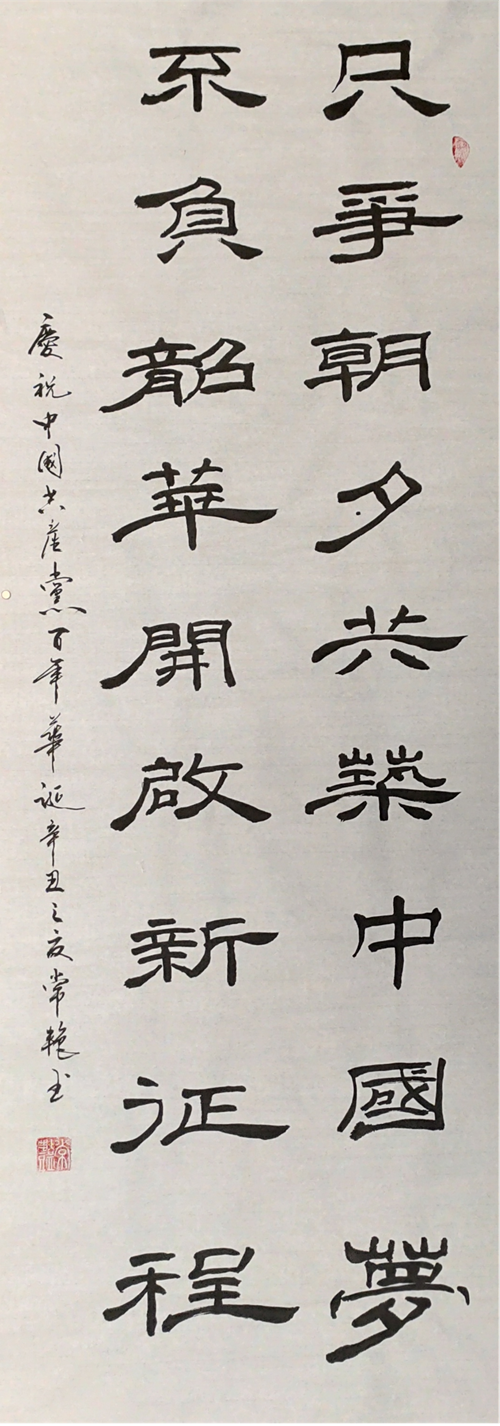 只爭朝夕共築中國夢
不負韶華開啟新征程
慶祝中國共產黨百年華誕辛丑之夏常艷書